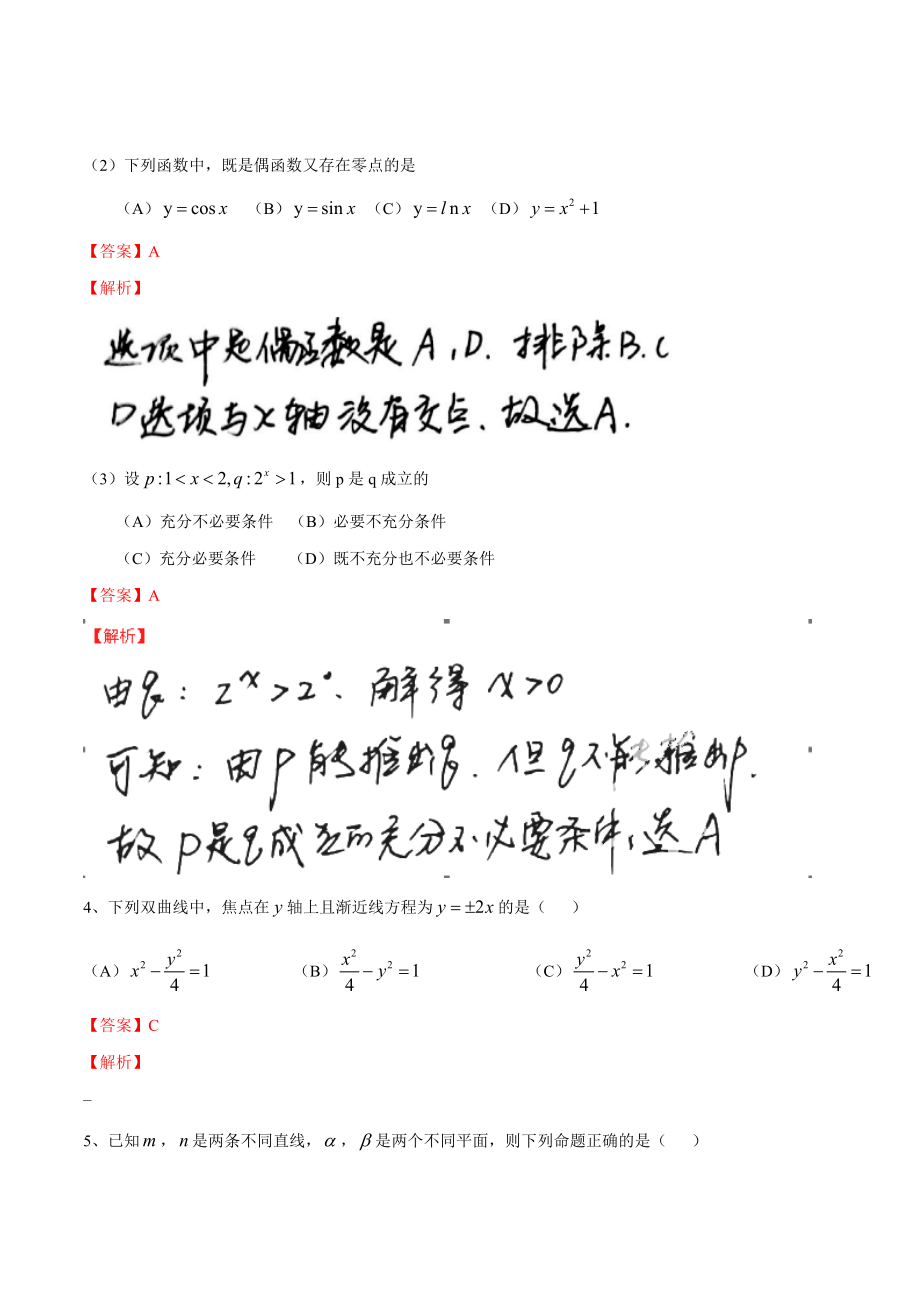 （2）下列函数中，既是偶函数又存在零点的是
（A）y = cos x （B）y = sin x （C）y = l n x （D）y = x² + 1
【答案】A
【解析】
选项中是偶函数是 A,D. 排除B.C
D选项与X轴没有交点. 故选A.
（3）设 p:1 < x < 2, q:2ˣ > 1，则 p 是 q 成立的
（A）充分不必要条件 （B）必要不充分条件
（C）充分必要条件 （D）既不充分也不必要条件
【答案】A
【解析】
由q: 2ˣ>2⁰. 解得 x>0
可知: 由p能推出q. 但q不能推出p.
故p是q成立的充分不必要条件, 选A
4、下列双曲线中，焦点在 y 轴上且渐近线方程为 y = ±2x 的是（ ）
（A）x² − y²/4 = 1 （B）x²/4 − y² = 1 （C）y²/4 − x² = 1 （D）y² − x²/4 = 1
【答案】C
【解析】
5、已知 m，n 是两条不同直线，α，β 是两个不同平面，则下列命题正确的是（ ）